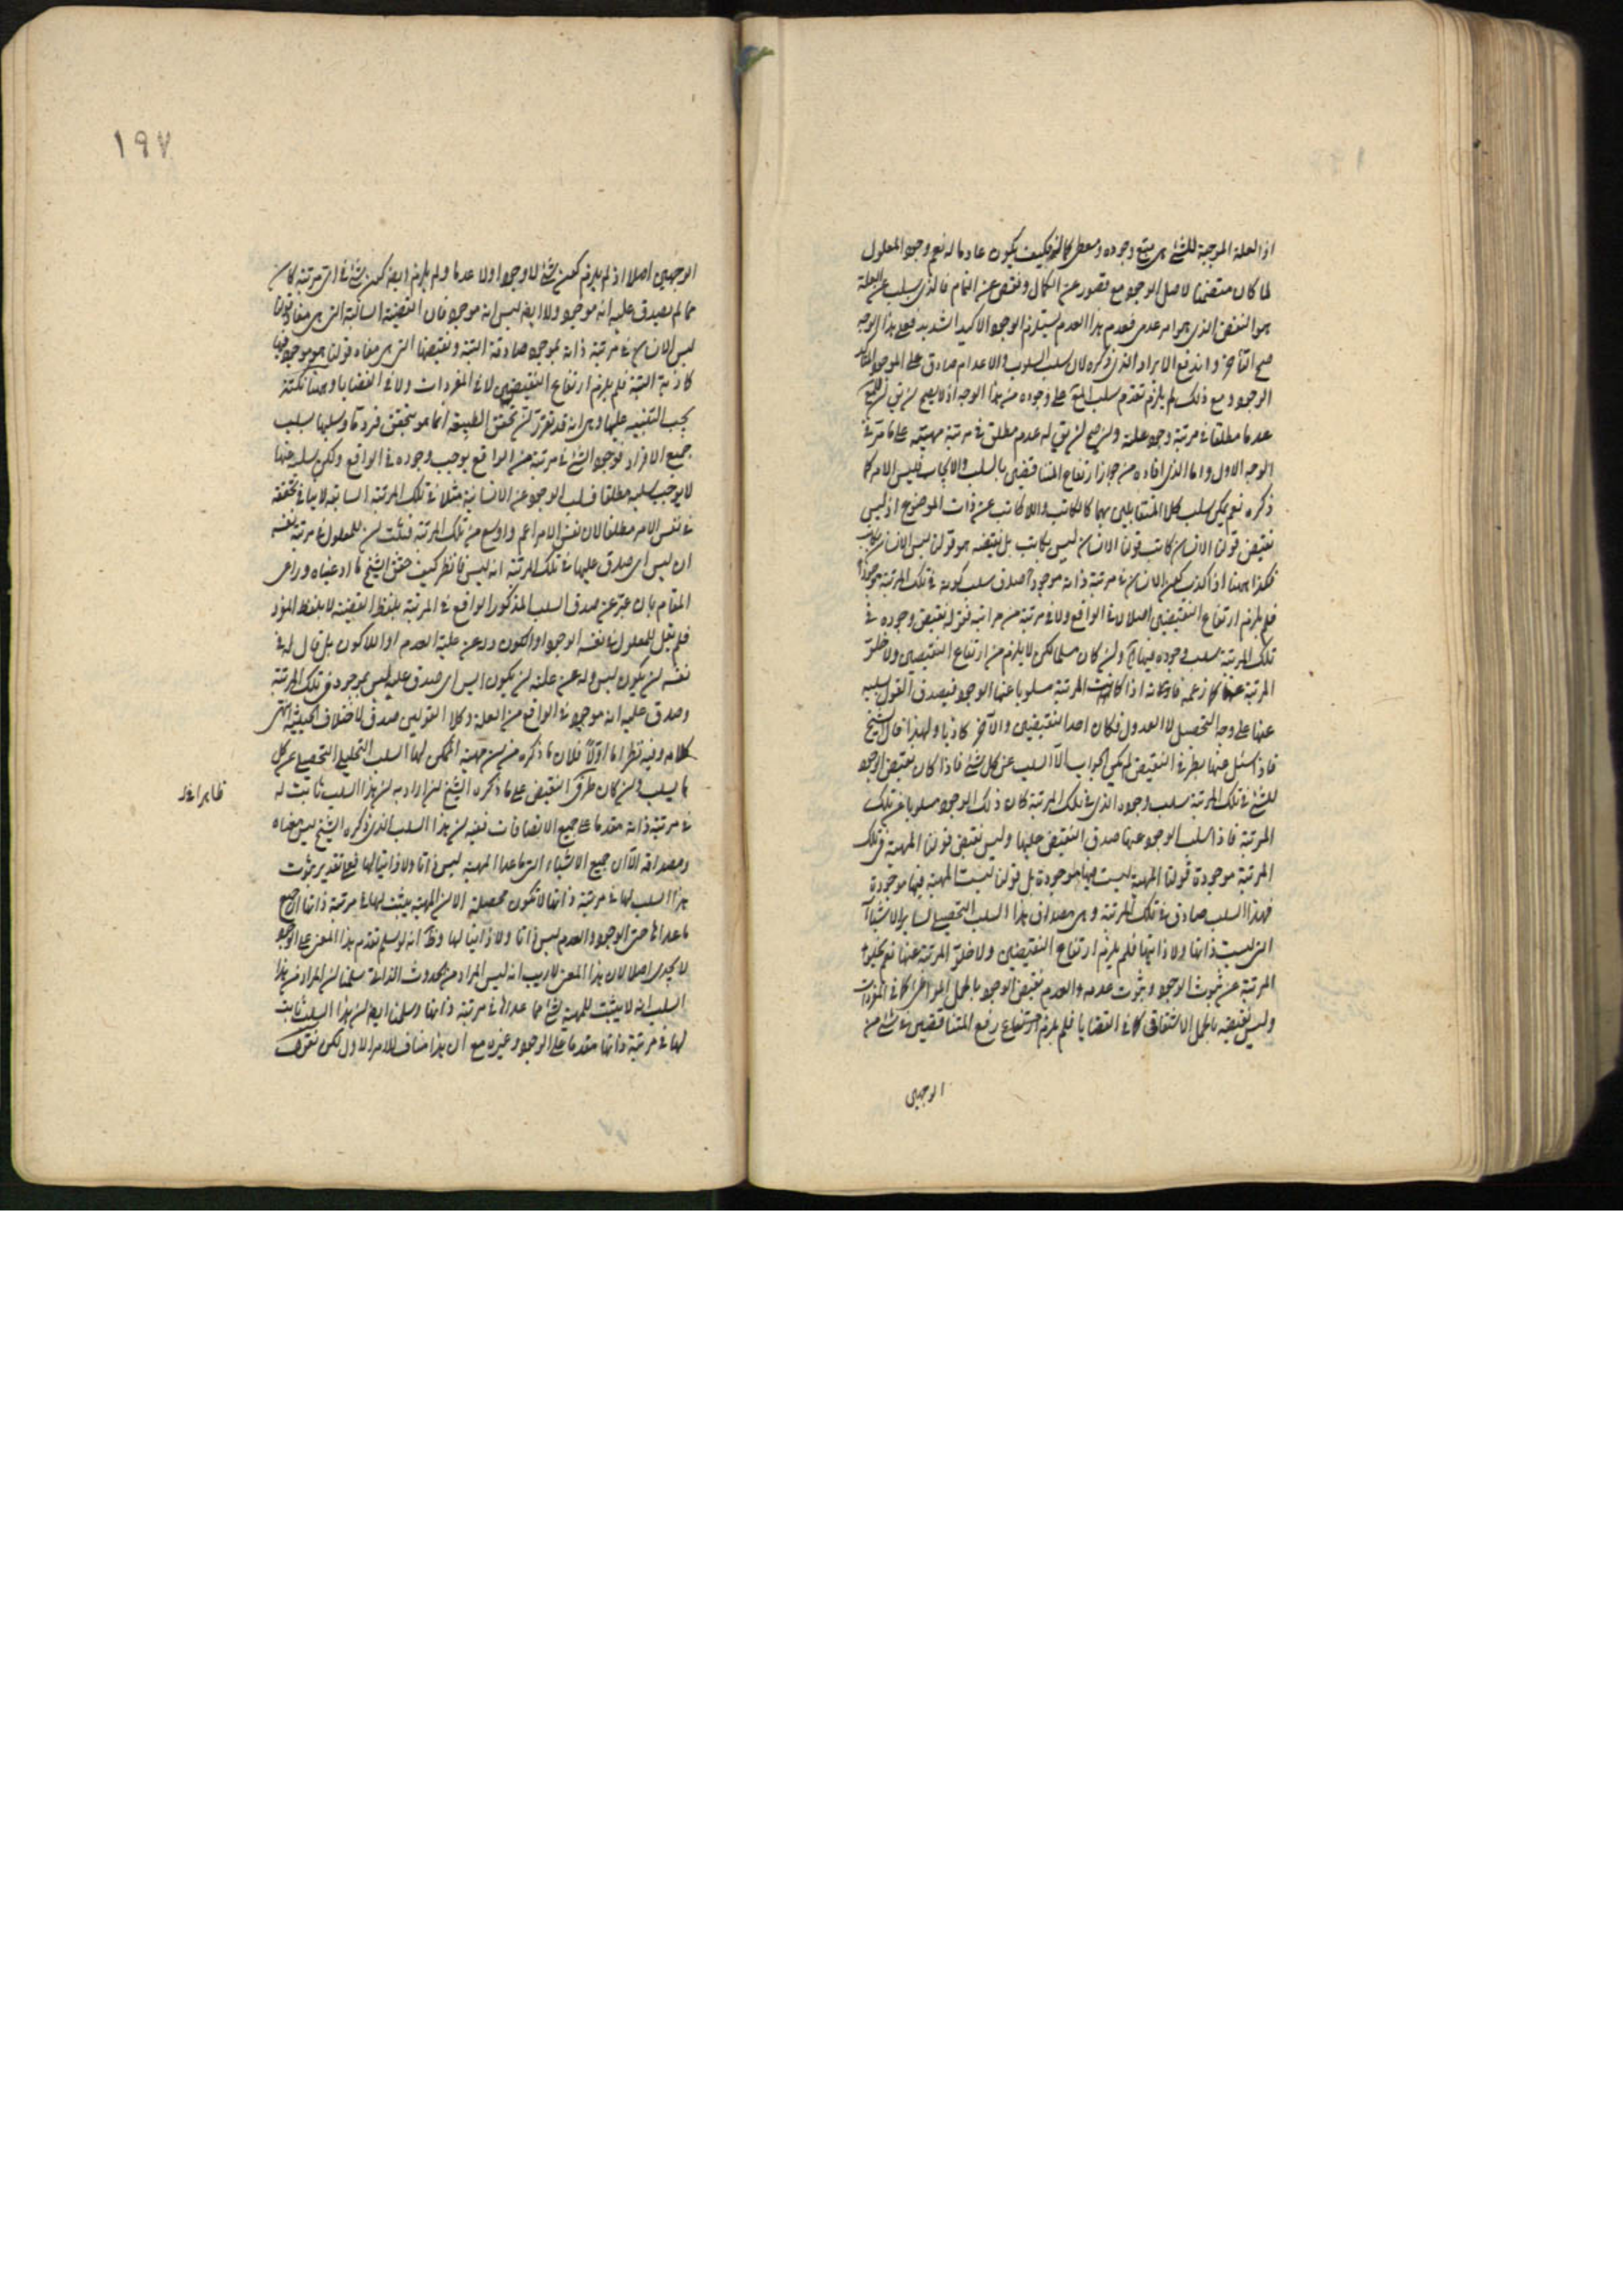 اذ العلة الموجبة للشئ هى ينبع وجوده ومعطى كماله فكيف يكون عادما له نعم وجود المعلول
لما كان متضمنا لاصل الوجود مع قصور عن الكمال ونقص عن التمام فالذى يسلب عن العلة
هو النقص الذى هو امر عدمى فعدم هذا العدم يستلزم الوجود الاكيد الشديد فعلى هذا الوجه
صح التأخر واندفع الايراد الذى ذكره لان سلب السلوب والاعدام صادق على الموجود
الوجود ومع ذلك لم يلزم تقدم سلب على وجوده من هذا الوجه اذ لا يصح ان يق ان
عدما مطلقا فى مرتبة وجود علته وان صح ان يق له عدم مطلق فى مرتبة مهيته على ما مر فى
الوجه الاول واما الذى افاده من جواز ارتفاع المتناقضين بالسلب والايجاب فليس الامر كما
ذكره نعم يمكن سلب كلا المتقابلين بهما كالكاتب واللا كاتب عن ذات الموضوع اذ ليس
نقيض قولنا الانسان كاتب قولنا الانسان ليس بكاتب بل نقيضه هو قولنا ليس الانسان بكاتب
فكذا ههنا اذا كذب كون الانسان فى مرتبة ذاته موجودا صدق سلب كونه فى تلك المرتبة موجودا
فلم يلزم ارتفاع النقيضين اصلا لا فى الواقع ولا فى مرتبة من مراتبه فقوله نقيض وجوده فى
تلك المرتبة سلب وجوده فيها وان كان مسلما لكن لا يلزم من ارتفاع النقيضين ولا خلو
المرتبة عنهما كما زعمه فانه اذا كانت المرتبة مسلوبا عنها الوجود فيصدق القول بسلبه
عنها على وجه التحصيل لا العدول فكان احد النقيضين والآخر كاذبا ولهذا قال الشيخ
فاذا سئل عنها بطرفى النقيض لم يكن الجواب الا السلب عن كل شئ فاذا كان نقيض الوجود
للشئ فى تلك المرتبة سلب وجوده الذى فى تلك المرتبة كان ذلك الوجود مسلوبا عن تلك
المرتبة فاذا سلب الوجود عنها صدق النقيض عليها وليس نقيض قولنا المهية فى تلك
المرتبة موجودة قولنا المهية ليست فيها موجودة بل قولنا ليست المهية فيها موجودة
فهذا السلب صادق فى تلك المرتبة وهى مصداق هذا السلب التحصيلى لساير الاشيآء
التى ليست ذاتها ولا ذاتيها فلم يلزم ارتفاع النقيضين ولا خلو المرتبة عنهما نعم يخلو
المرتبة عن ثبوت الوجود وثبوت عدمه والعدم نقيض الوجود بالحمل المواطى كما فى المفردات
وليس نقيضه بالحمل الاشتقاقى كما فى القضايا فلم يلزم ارتفاع رفع المتناقضين فى شئ من
الوجهين
١٩٧
الوجهين اصلا اذ لم يلزم كون شئ لا وجودا ولا عدما ولم يلزم ايضا كون شئ فى اى مرتبة كان
مما لم يصدق عليه انه موجود ولا ايضا ليس انه موجود فان القضية السالبة التى هى مفاد قولنا
ليس الانسان فى مرتبة ذاته بموجود صادقة البتة ونقيضها التى هى مفاده قولنا هو موجود فيها
كاذبة البتة فلم يلزم ارتفاع النقيضين لا فى المفردات ولا فى القضايا وههنا نكتة
يجب التنبيه عليها وهى انه قد تقرر ان تحقق الطبيعة انما هو بتحقق فرد ما وسلبها بسلب
جميع الافراد فوجود الشئ فى مرتبة من الواقع يوجب وجوده فى الواقع ولكن سلبه عنها
لا يوجب سلبه مطلقا فسلب الوجود عن الانسانية مثلا فى تلك المرتبة السابقة لا ينافى تحققه
فى نفس الامر مطلقا لان نفس الامر اعم واوسع من تلك المرتبة فثبت ان للمعلول فى مرتبة نفسه
ان ليس اى صدق عليها فى تلك المرتبة انه ليس فانظر كيف حقق الشيخ ما ادعيناه وراعى
المقام بان عبر عن صدق السلب المذكور الواقع فى المرتبة بلفظ القضية لا بلفظ المفرد
فلم يقل للمعلول فى نفسه الوجود او الكون وله عن علته العدم او اللا كون بل قال له فى
نفسه ان يكون ليس وله عن علته ان يكون ايس اى صدق عليه ليس بموجود فى تلك المرتبة
وصدق عليه انه موجود فى الواقع من العلة وكلا القولين صدق لاختلاف الحيثية انتهى
كلامه وفيه نظر اما اولا فلان ما ذكره من ان مهية الممكن لها السلب التحصيلى عن كل
ما يسلب وان كان طرفى النقيض على ما ذكره الشيخ ان اراد به ان هذا السلب ثابت له
ظاهرا لفظ
فى مرتبة ذاته مقدما على جميع الاتصافات ففيه ان هذا السلب الذى ذكره الشيخ ليس معناه
ومصداقه الا ان جميع الاشياء التى ما عدا المهية ليس ذاتا ولا ذاتيا لها فعلى تقدير ثبوت
هذا السلب لها فى مرتبة ذاتها لا تكون محصلة الا ان المهية يثبت لها فى مرتبة ذاتها ان جميع
ما عداها حتى الوجود والعدم ليس ذاتا ولا ذاتيا لها وظ انه لو سلم تقدم هذا المعنى على الوجود
لا يجدى اصلا لان هذا المعنى لا ريب انه ليس المراد من الحدوث الذاتى سلمنا ان المراد من هذا
السلب انه لا يثبت للمهية شئ مما عداها فى مرتبة ذاتها وسلمنا ايضا ان هذا السلب ثابت
لها فى مرتبة ذاتها مقدما على الوجود وغيره مع ان هذا مناف للامر الاول لكن نقول